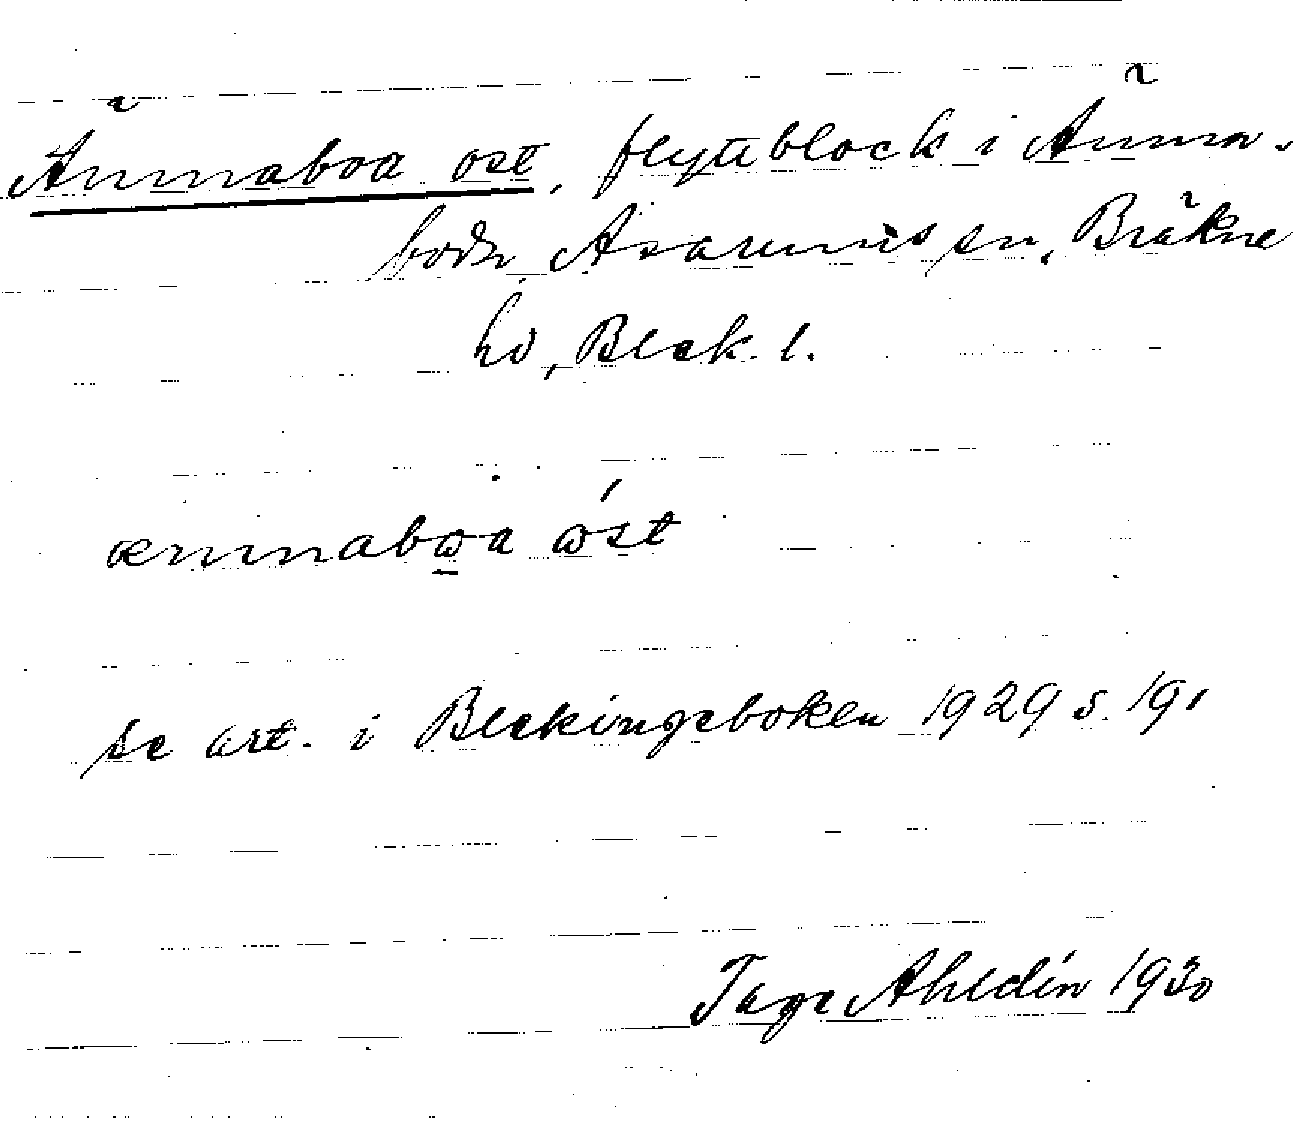 Ännaboa ost, flyttblock i Änna-
boda, Asarums sn, Bräkne
hd, Blek. l.
ænnabωa ωst
se art. i Blekingeboken 1929 s. 191
Tage Ahldén 1930